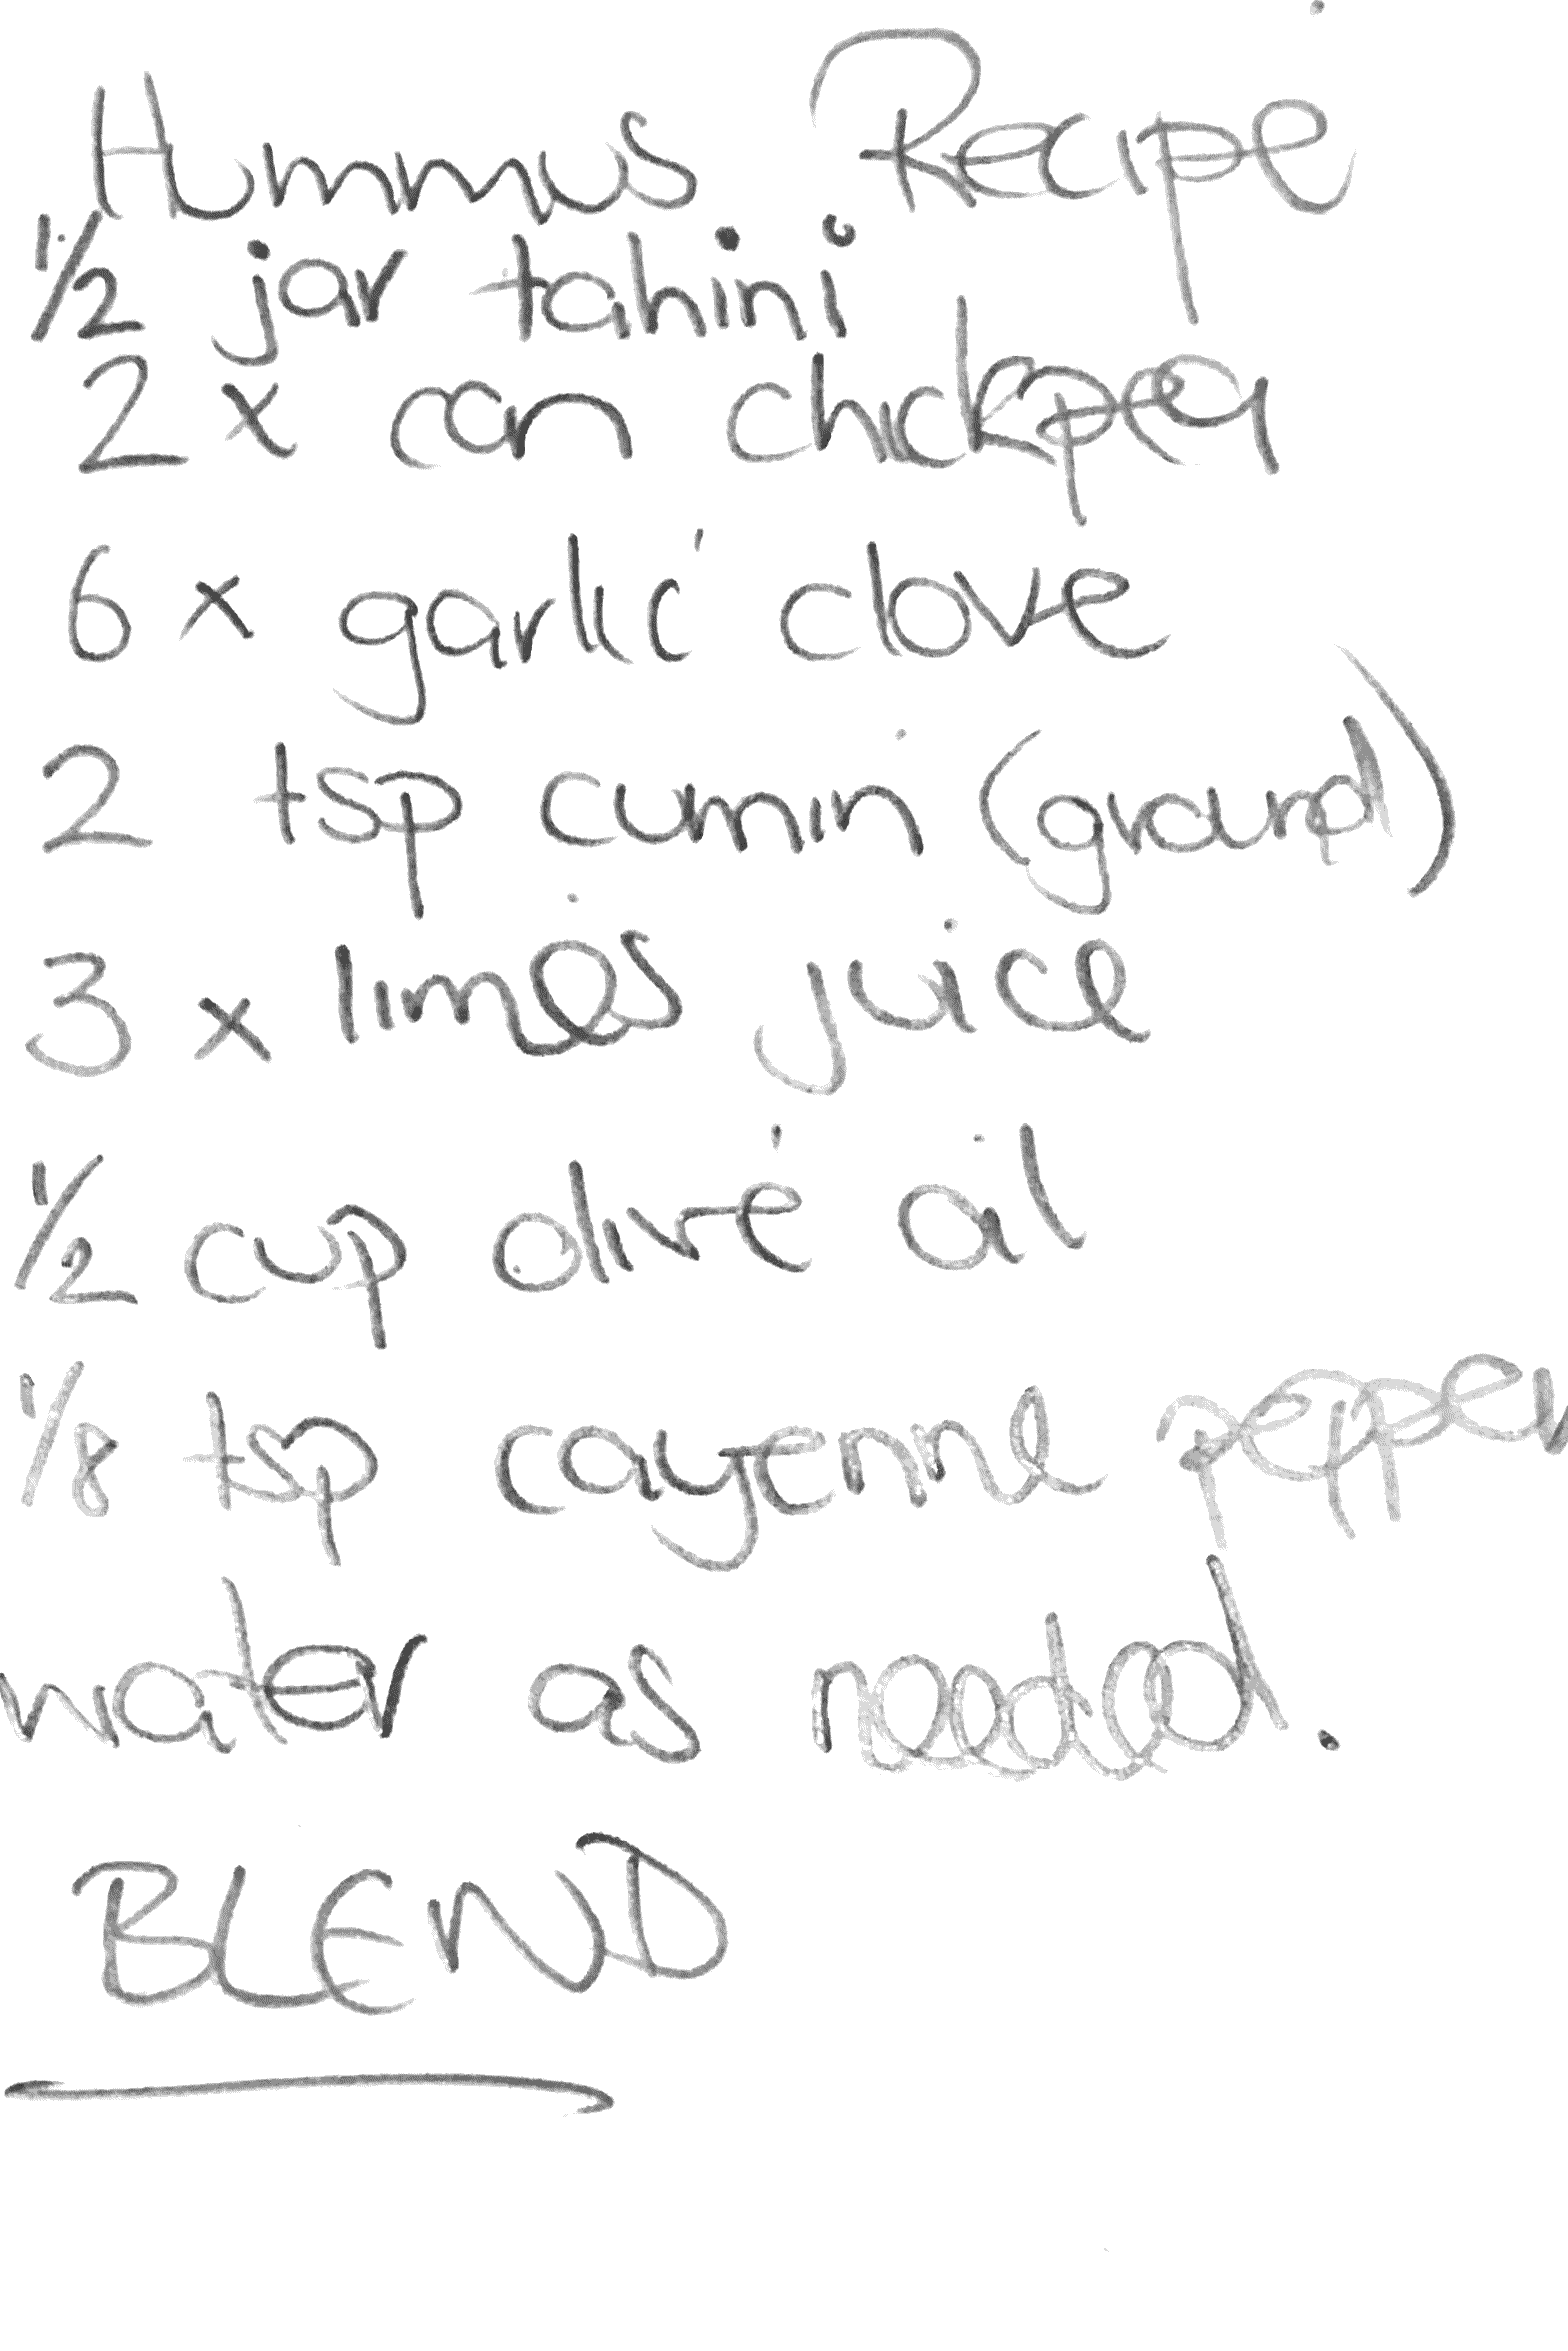 Hummus Recipe
1/2 jar tahini
2 x can chickpea
6 x garlic clove
2 tsp cumin (ground)
3 x limes juice
1/2 cup olive oil
1/8 tsp cayenne pepper
water as needed.
BLEND